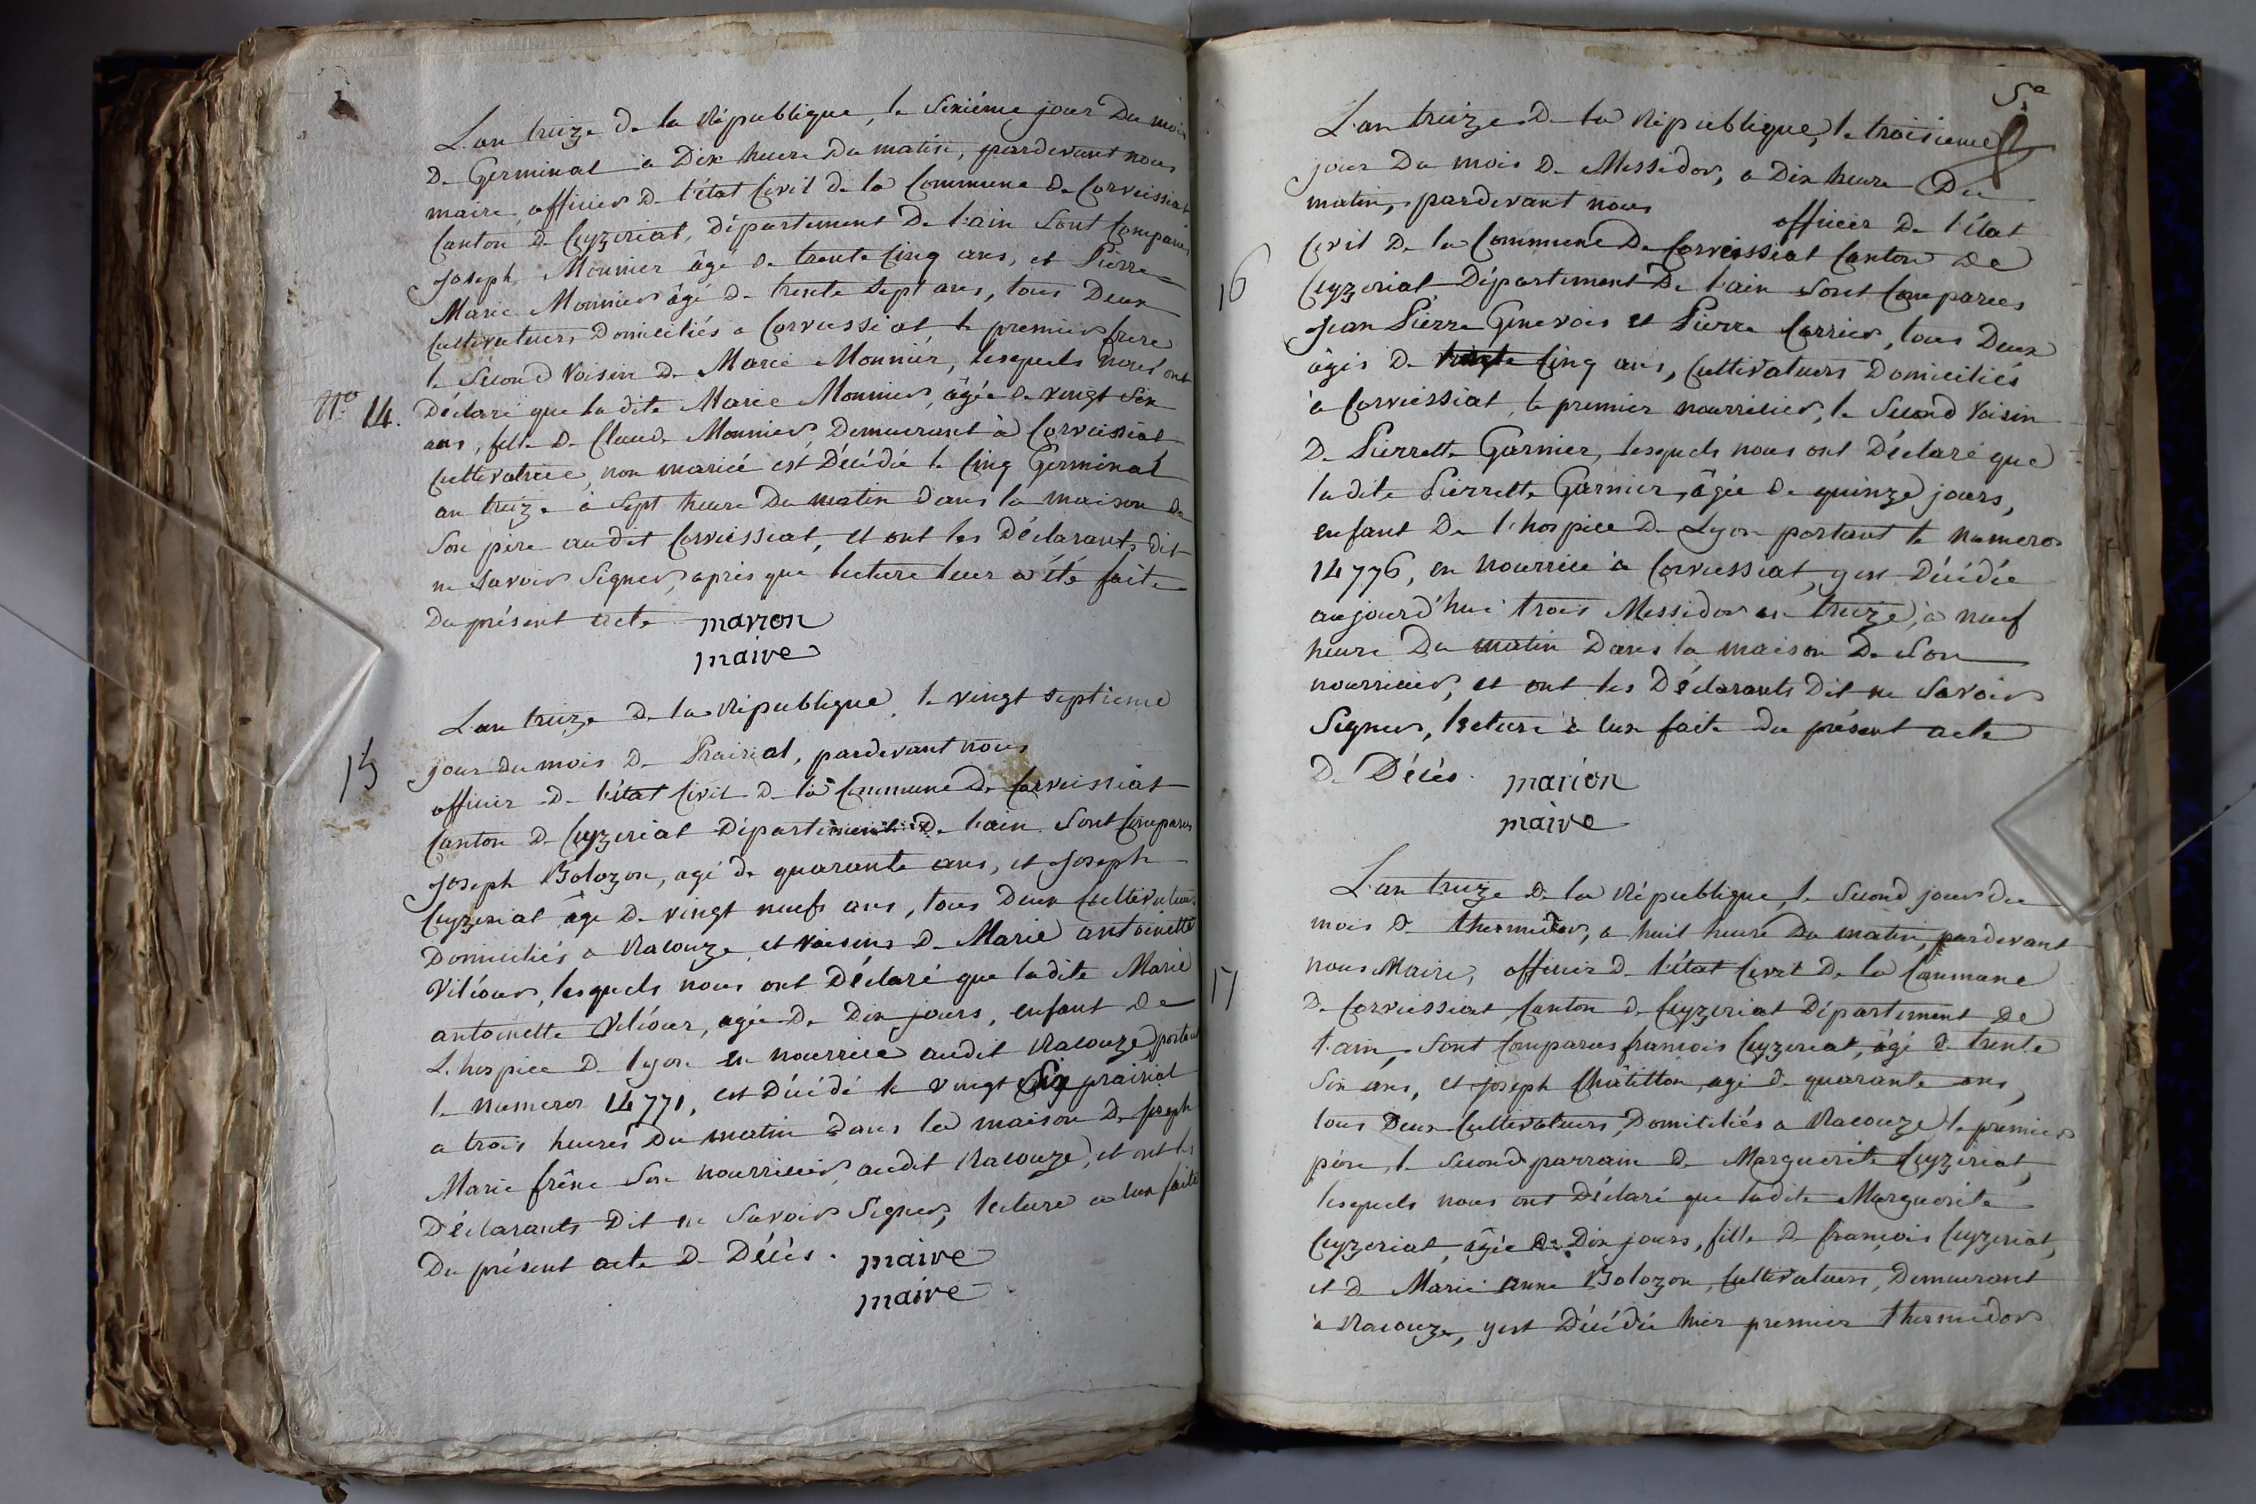 L'an treize de la République, le sixième jour du mois
de Germinal à dix heure du matin, pardevant nous
maire, officier de l'état civil de la Commune de Corveissiat
Canton de Ceyzeriat, Département de l'ain sont comparus
Joseph Monnier âgé de trente cinq ans, et Pierre
Marie Monnier âgé de trente sept ans, tous deux
cultivateurs domiciliés a Corveissiat le premier frere
le second voisin de Marie Monnier, lesquels nous ont
N.o 14. déclaré que ladite Marie Monnier, âgée de vingt six
ans, fille de Claude Monnier, demeurant à Corveissiat
cultivatrice, non mariée est décédée le cinq Germinal
an treize à sept heure du matin dans la maison de
son père audit Corveissiat, et ont les déclarants dit
ne savoir signer, après que lecture leur a été faite
du présent acte marion
maire
L'an treize de la République, le vingt septieme
15 jour du mois de Prairial, pardevant nous
officier de l'état civil de la Commune de Corveissiat
Canton de Ceyzeriat département de l'ain sont comparus
Joseph Bolozon, agé de quarante ans, et Joseph
Ceyzeriat âgé de vingt neuf ans, tous deux cultivateurs
domiciliés a Racouze et voisins de Marie antoinette
Viliour, lesquels nous ont déclaré que ladite Marie
antoinette Viliour, agée de dix jours, enfant de
L'hospice de lyon en nourrice audit Racouze portant
le numeros 14771, est décédé le vingt six prairial
a trois heures du matin dans la maison de Joseph
Marie frêne son nourricier audit Racouze, et ont les
déclarants dit ne savoir signer, lecture a eux faite
du présent acte de décès. maire
maire
5.e
L'an treize de la République, le troisieme
jour du mois de Messidor, a dix heure du
matin, pardevant nous officier de l'état
civil de la Commune de Corveissiat Canton de
16 Ceyzeriat Département de l'ain sont comparus
Jean Pierre Genevois et Pierre Carrier, tous deux
âgés de trente cinq ans, cultivateurs domiciliés
à Corveissiat, le premier nourricier, le second voisin
de Pierrette Garnier, lesquels nous ont déclaré que
ladite Pierrette Garnier, âgée de quinze jours,
enfant de l'hospice de Lyon portant le numeros
14776, en nourrice à Corveissiat, y est décédée
aujourd'hui trois Messidor an treize, à neuf
heure du matin dans la maison de son
nourricier, et ont les déclarants dit ne savoir
signer, lecture à eux faite du présent acte
de décès. marion
maire
L'an treize de la République, le second jour du
mois de thermidor, a huit heure du matin, pardevant
nous Maire, officier de l'état civil de la Commune
17 de Corveissiat, Canton de Ceyzeriat Département de
l'ain, sont comparus francois Ceyzeriat, âgé de trente
six ans, et joseph Châtillon agé de quarante ans,
tous deux cultivateurs, domiciliés a Racouze, le premier
père, le second parrain de Marguerite Ceyzeriat,
lesquels nous ont déclaré que ladite Marguerite
Ceyzeriat, âgée de dix jours, fille de francois Ceyzeriat,
et de Marie anne Bolozon, cultivateurs, demeurant
à Racouze, y est décédée hier premier thermidor